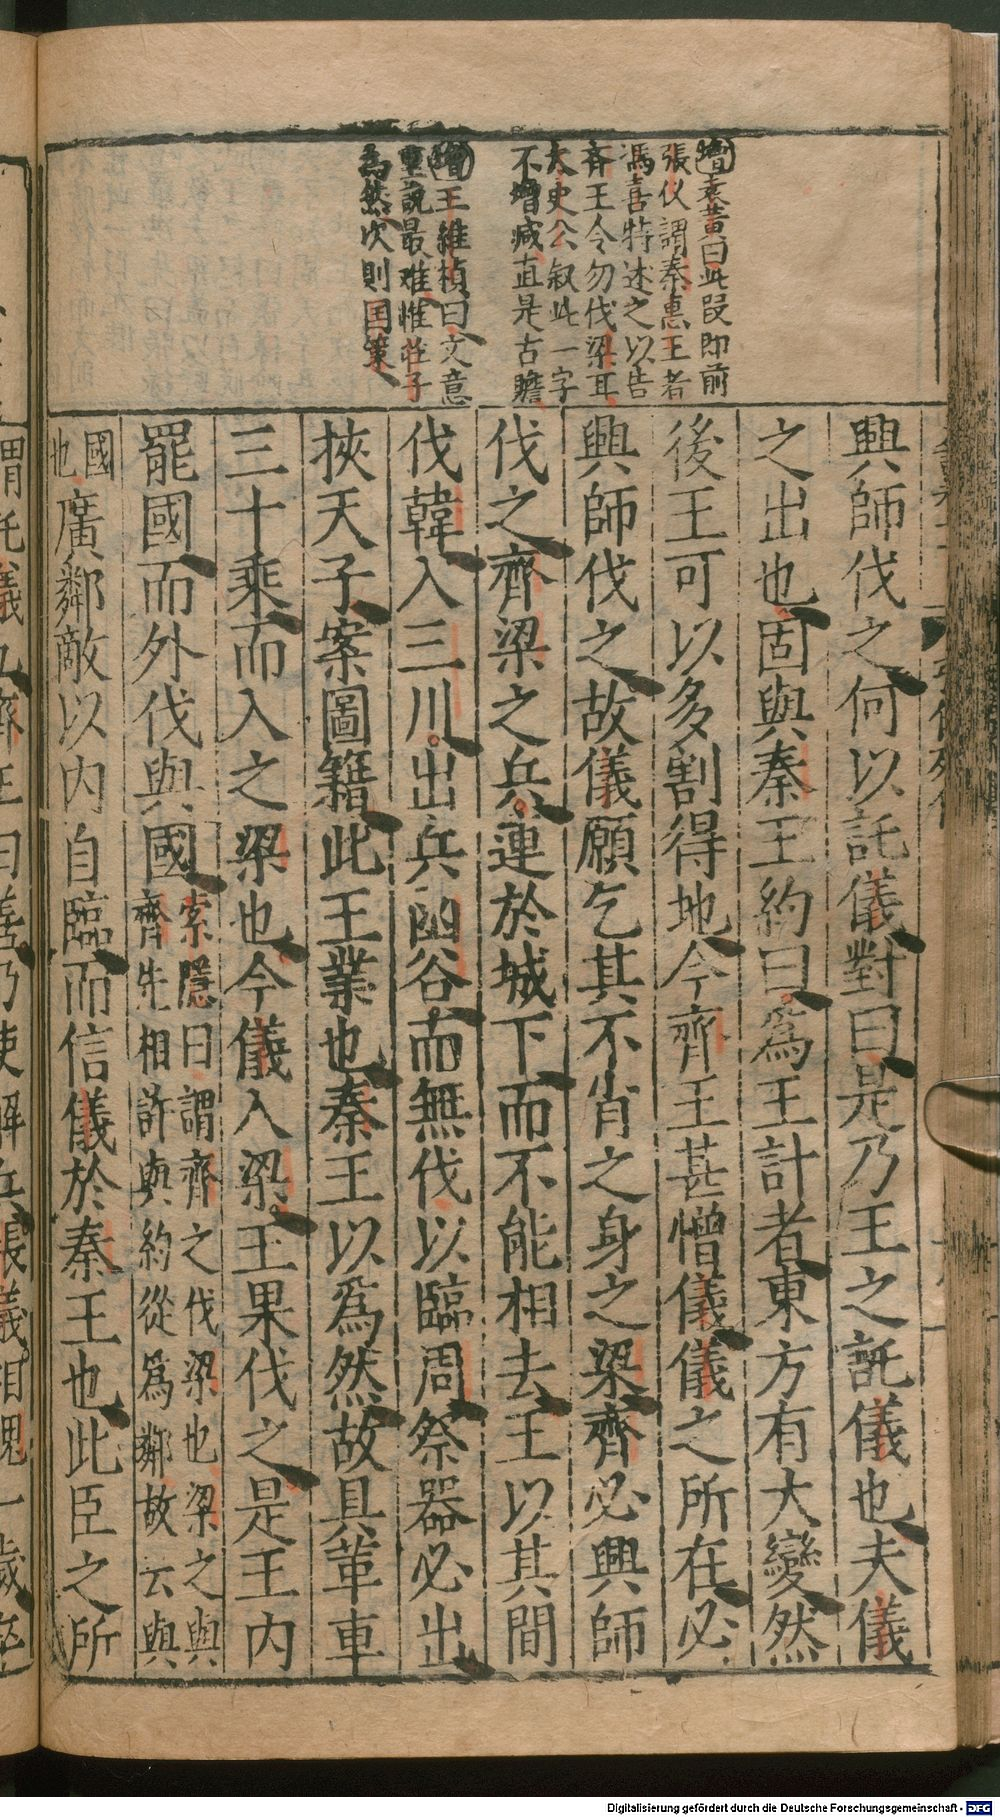 增袁黄曰此叚即前
張仪謂秦惠王者
馮喜特述之以告
斉王令勿伐梁耳
太史公叙此一字
不增减直是古贍
增王維楨曰文意
重說最难惟莊子
為然次則国策
興師伐之何以託儀對曰是乃王之託儀也夫儀
之出也固與秦王約曰爲王計者東方有大變然
後王可以多割得地今齊王甚憎儀儀之所在必
興師伐之故儀願乞其不肖之身之梁齊必興師
伐之齊梁之兵連於城下而不能相去王以其間
伐韓入三川出兵凾谷而無伐以臨周祭器必出
挾天子案圖籍此王業也秦王以爲然故具革車
三十乘而入之梁也今儀入梁王果伐之是王内
罷國而外伐與國索隱曰謂齊之伐梁也梁之與
齊先相許與約從爲鄰故云與
國也廣鄰敵以内自臨而信儀於秦王也此臣之所
謂託儀也齊王曰善乃使解兵張儀相魏一歲卒
Digitalisierung gefördert durch die Deutsche Forschungsgemeinschaft - DFG